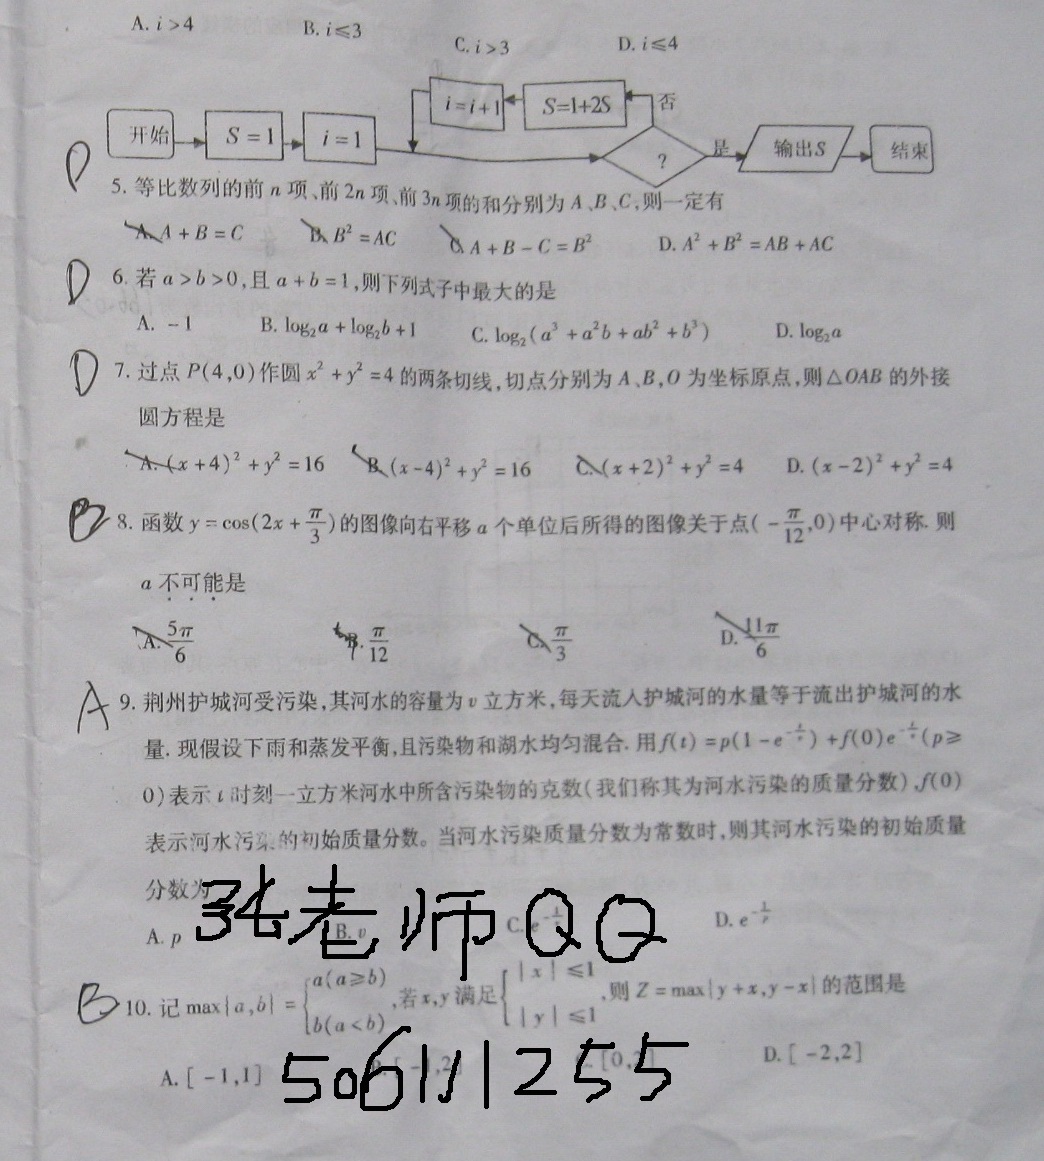 A. i>4 B. i≤3 C. i>3 D. i≤4
开始 S=1 i=1 i=i+1 S=1+2S 否 ? 是 输出S 结束
D 5. 等比数列的前 n 项、前 2n 项、前 3n 项的和分别为 A、B、C,则一定有
A. A+B=C B. B²=AC C. A+B-C=B² D. A²+B²=AB+AC
D 6. 若 a>b>0,且 a+b=1,则下列式子中最大的是
A. -1 B. log₂a+log₂b+1 C. log₂(a³+a²b+ab²+b³) D. log₂a
D 7. 过点 P(4,0)作圆 x²+y²=4 的两条切线,切点分别为 A、B,O 为坐标原点,则△OAB 的外接
圆方程是
A. (x+4)²+y²=16 B. (x-4)²+y²=16 C. (x+2)²+y²=4 D. (x-2)²+y²=4
B 8. 函数 y=cos(2x+π/3)的图像向右平移 a 个单位后所得的图像关于点(-π/12,0)中心对称. 则
a 不可能是
A. 5π/6 B. π/12 C. π/3 D. 11π/6
A 9. 荆州护城河受污染,其河水的容量为 v 立方米,每天流入护城河的水量等于流出护城河的水
量. 现假设下雨和蒸发平衡,且污染物和湖水均匀混合. 用 f(t)=p(1-e )+f(0)e (p≥
0)表示 t 时刻一立方米河水中所含污染物的克数(我们称其为河水污染的质量分数),f(0)
表示河水污染的初始质量分数。当河水污染质量分数为常数时,则其河水污染的初始质量
分数为
A. p B. v C. e D. e
张老师QQ
B 10. 记 max{a,b}={a(a≥b) b(a<b) ,若 x,y 满足{|x|≤1 |y|≤1 ,则 Z=max|y+x,y-x|的范围是
A. [-1,1] [-1,2] C. [0,2] D. [-2,2]
506111255